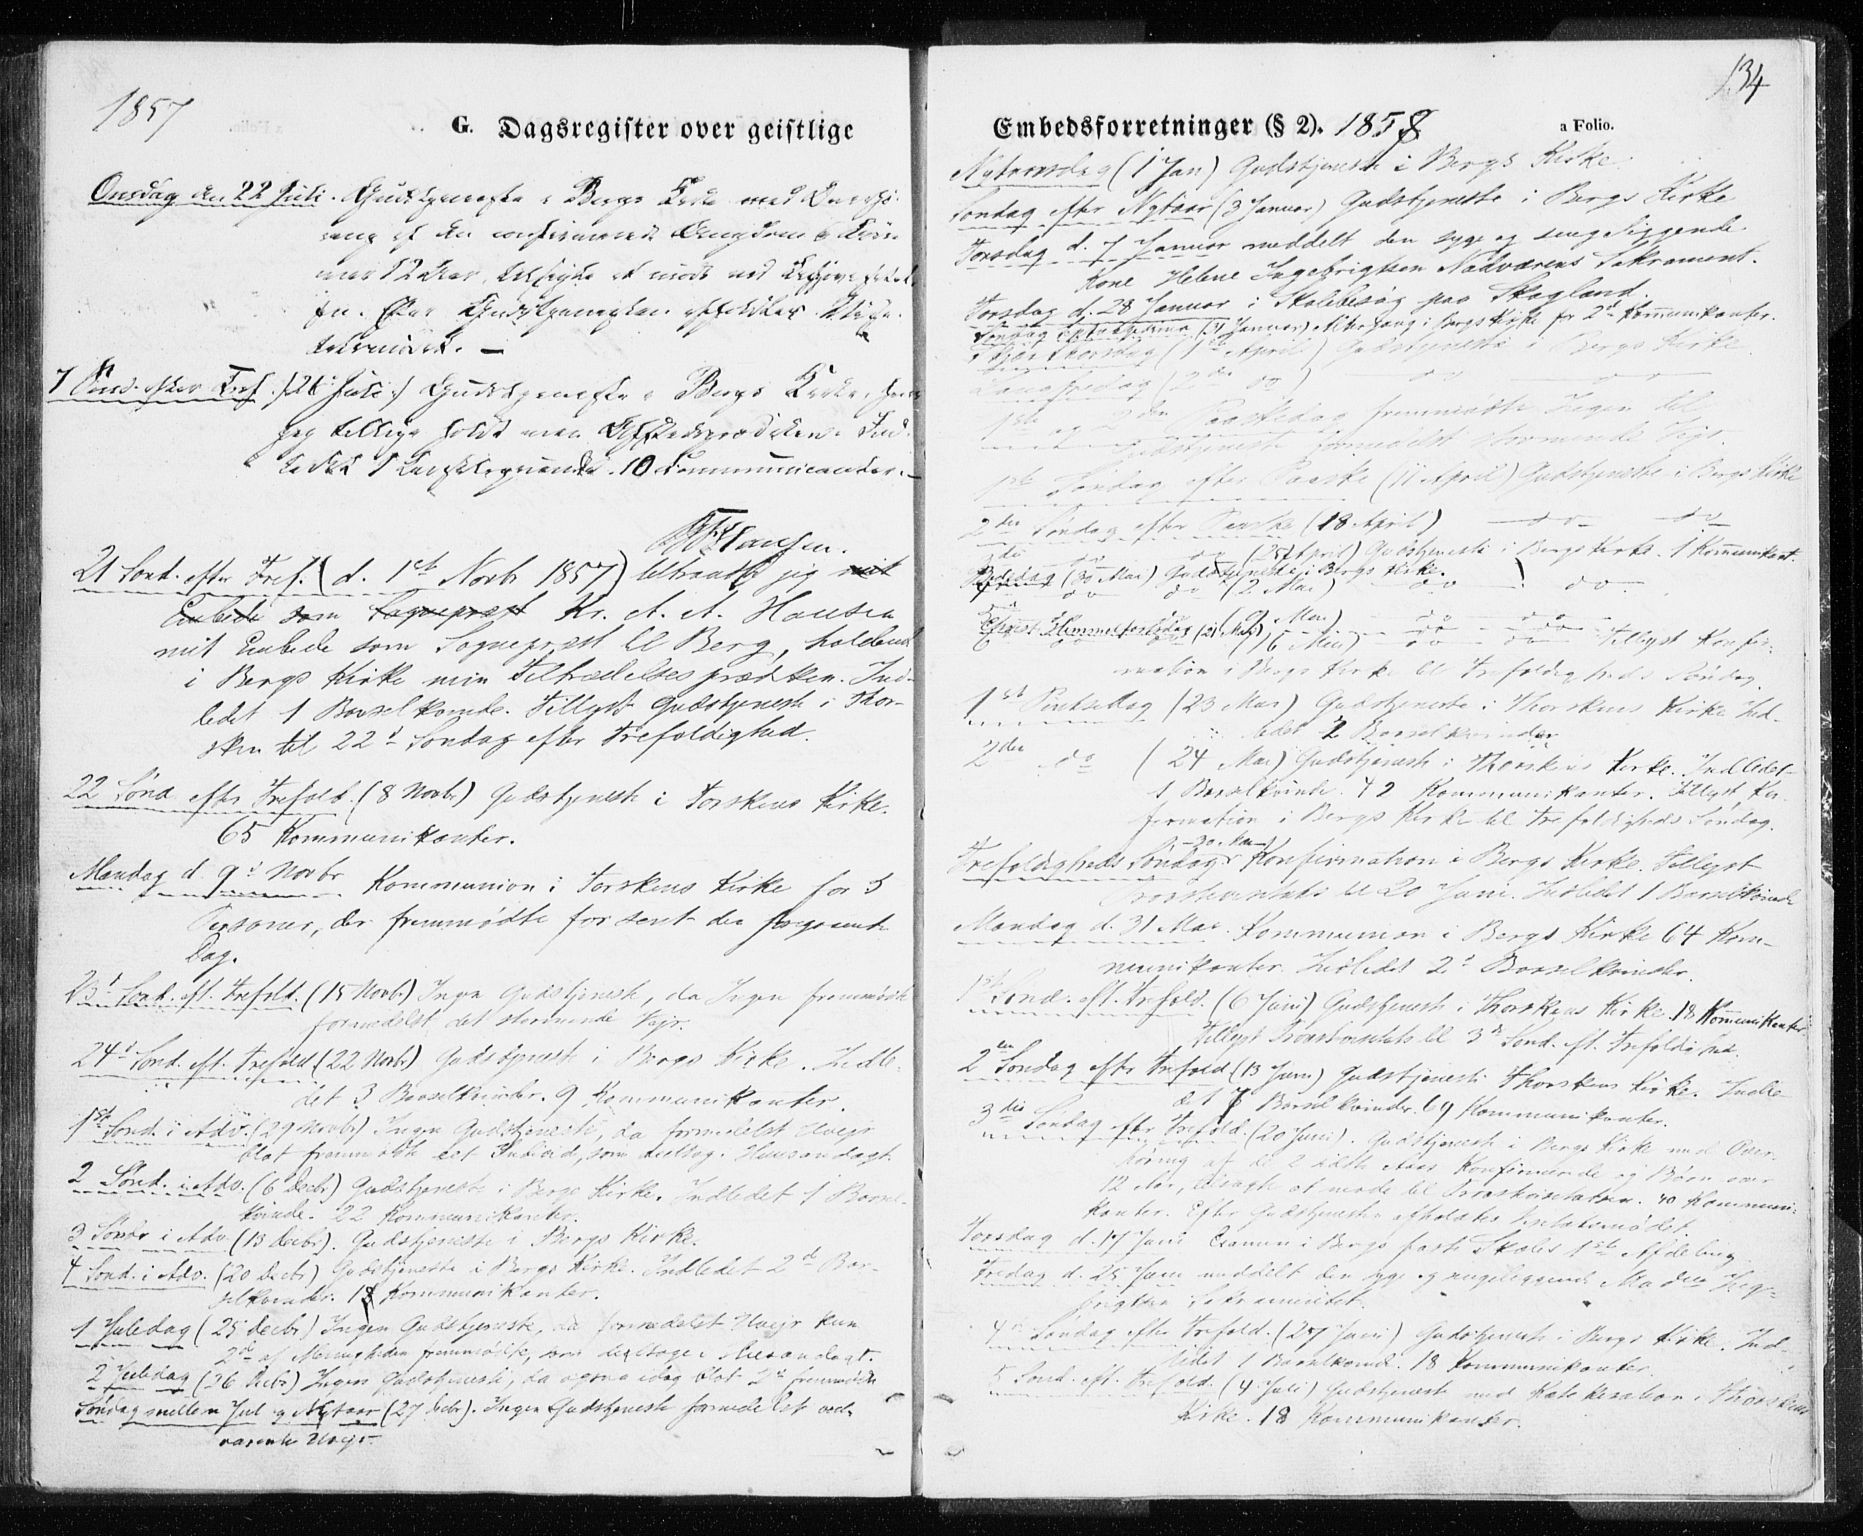 1857
G. Dagsregister over geistlige
Onsdag den 22 Juli. Gudstjeneste i Bergs Kirke med Overhø-
ring af den confirmerede Ungdom og Børn
over 12 Aar,
Efter Gudstjenesten afholdtes
7 Sønd. efter Tref. (26 Juli) Gudstjeneste i Bergs Kirke, hvor
jeg tillige holdt min Afskedsprædiken. Ind-
ledet 1 Barselqvinde. 10 Communicanter. –
Hansen.
21 Sønd. efter Tref. (d. 1ste Novbr 1857) tiltraadte jeg mit
Embede som Sognepræst Kr. A. A. Hansen
mit Embede som Sognepræst til Berg, holdende
i Bergs Kirke min Tiltrædelsesprædiken. Ind-
ledet 1 Barselkvinde. Tillyst Gudstjeneste i Thor-
sken til 22d Søndag efter Trefoldighed.
22 Sønd efter Trefold. (8 Novbr) Gudstjeneste i Torskens Kirke.
65 Kommunikanter.
Mandag d. 9d Novbr Kommunion i Torskens Kirke for 3
Personer, der fremmødte for sent den foregaaende
Dag.
23d Sønd. eft. Trefold. (15 Novb.) Ingen Gudstjeneste, da Ingen fremmødte
formedelst det stormende Vejr.
24d Sønd. eft. Trefold (22 Novb.) Gudstjeneste i Bergs Kirke. Indle-
det 3 Barselkvinder. 9 Kommunikanter.
1ste Sønd. i Adv. (29 Novbr) Ingen Gudstjeneste, da formedelst Uvejr
blot fremmødte eet Individ, som deeltog i Huusandagt.
2 Sønd. i Adv. (6 Decbr) Gudstjeneste i Bergs Kirke. Indledet 1 Barsel-
kvinde. 22 Kommunikanter.
3 Søndr i Adv (13 Decbr). Gudstjeneste i Bergs Kirke.
4 Sønd. i Adv. (20 Decbr) Gudstjeneste i Bergs Kirke. Indledet 2d Bar-
selkvinder. 18 Kommunikanter.
1 Juledag (25 Decbr) Ingen Gudstjeneste, da formedelst Uvejr kun
2de af Menigheden fremmødte, som deeltoge i Huusandagt.
2 Juledag (26 Decbr) Ingen Gudstjeneste, da ogsaa idag blot 2de fremmødte
Søndag mellem Jul og Nytaar (27 Decbr). Ingen Gudstjeneste formedelst ved-
varende Uvejr.
134
Embedsforretninger (§ 2). 1858
a Folio.
Nytaarsdag (1 Jan) Gudstjeneste i Bergs Kirke.
Søndag efter Nytaar (3 Januar) Gudstjeneste i Bergs Kirke
Torsdag d. 7 Januar meddelt den syge og sengeliggende
Kone Helene Ingebrigtsen Nadverens Sakrament.
Torsdag d. 28 Januar i Skolebesøg paa Skagland.
Søndag Septuagesima (31 Januar) Altergang i Bergs Kirke for 2de Kommunikanter.
Skjær Thorsdag (1ste April) Gudstjeneste i Bergs Kirke
Langfredag (2den do) do do
1ste og 2den Paaskedag fremmødte Ingen til
Gudstjeneste formedelst stormende Vejr.
1ste Søndag efter Paaske (11 April) Gudstjeneste i Bergs Kirke
2den Søndag efter Paaske (18 April) do do
3die do do (25 April) Gudstjeneste i Bergs Kirke. 1 Kommunikant.
Bededag (30 Mai) Gudstjeneste i Bergs Kirke.
do do (2 Mai) do do
(9 Mai) do do
Christi Himmelfartsdag (21 Mai)
6 do do (16 Mai) do do Tillyst Konfir-
mation i Bergs Kirke til Trefoldigheds Søndag.
1ste Pintsedag (23 Mai) Gudstjeneste i Thorskens Kirke Ind-
ledet 2 Barselkvinder
2den do (24 Mai) Gudstjeneste i Thorskens Kirke. Indledet
1 Barselkvinde. 42 Kommunikanter. Tillyst Kon-
firmation i Bergs Kirke til Trefoldigheds Søndag.
30 Mai
Trefoldigheds Søndag Konfirmation i Bergs Kirke. Tillyst
Provstevisitats til 20 Juni. Indledet 1 Barselkvinde
Mandag d. 31 Mai Kommunion i Bergs Kirke 64 Kom-
munikanter. Indledet 2d Barselkvinder.
1ste Sønd. eft. Trefold. (6 Juni) Gudstjeneste i Thorskens Kirke. 18 Kommunikanter.
Tillyst Provstevisitats til 3die Sønd. eft. Trefoldighed.
2den Søndag efter Trefold (13 Juni) Gudstjeneste Thorskens Kirke. Indle-
det 7 Barselkvinder. 69 Kommunikanter.
3die Søndag efter Trefold. (20 Juni). Gudstjeneste i Bergs Kirke med Over-
høring af de 2 sidste Aars Konfirmerede og Børn over
12 Aar, tilsagte at møde til Provstevisitatsen. 40 Kommuni-
kanter. Efter Gudstjenesten afholdtes Visitatsmødet.
Torsdag d. 17 Juni Examen i Bergs faste Skoles 1ste Afdeling
Fredag d. 25 Juni meddelt den syge og sengeliggende
Sakramentet.
4de Søndag efter Trefold. (27 Juni) Gudstjeneste i Bergs Kirke. Ind-
ledet 1 Barselkvinde. 18 Kommunikanter.
5 Sønd. eft. Trefold. (4 Juli) Gudstjeneste med Katekisation i Thorskens
Kirke. 18 Kommunikanter.